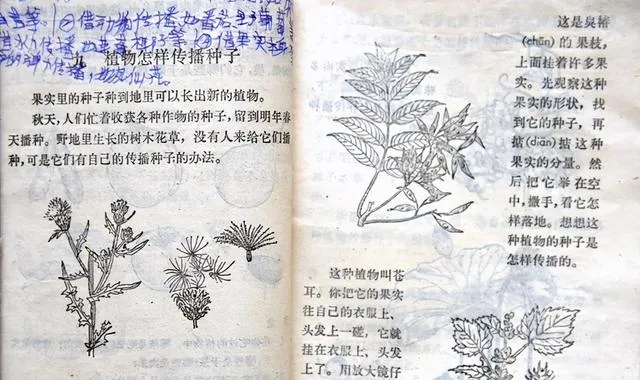 九 植物怎样传播种子
果实里的种子种到地里可以长出新的植物。
秋天,人们忙着收获各种作物的种子,留到明年春
天播种。野地里生长的树木花草,没有人来给它们播
种,可是它们有自己的传播种子的办法。
这是臭椿
(chūn)的果枝,
上面挂着许多果
实。先观察这种
果实的形状,找
到它的种子,再
掂(diān)掂这种
果实的分量。然
后把它举在空
中,撒手,看它怎
样落地。想想这
种植物的种子是
怎样传播的。
这种植物叫苍
耳。你把它的果实
往自己的衣服上、
头发上一碰,它就
挂在衣服上、头发
上了。用放大镜仔